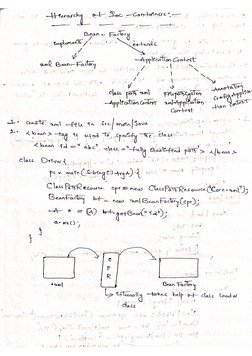 Hierarchy of Ioc - Containers :-
Bean - Factory
implements
extends
xml Bean - Factory
Application Context
Class path xml
Application Context
File system
xml Application
Context
Annotation
Config Applica-
tion Context
1. create xml - file in src/main/java
2. <bean> - tag is used to specify the class
<bean id = "abc" class = "fully Qualified path"> </bean>
class Driver {
main (String [] args) {
ClassPathResource cpr = new ClassPathResource("Core.xml");
BeanFactory bf = new xmlBeanFactory(cpr);
A a = (A) bf.getBean("id");
a.m1();
}
}
CPR
xml
Bean Factory
Internally takes help of class loader
class